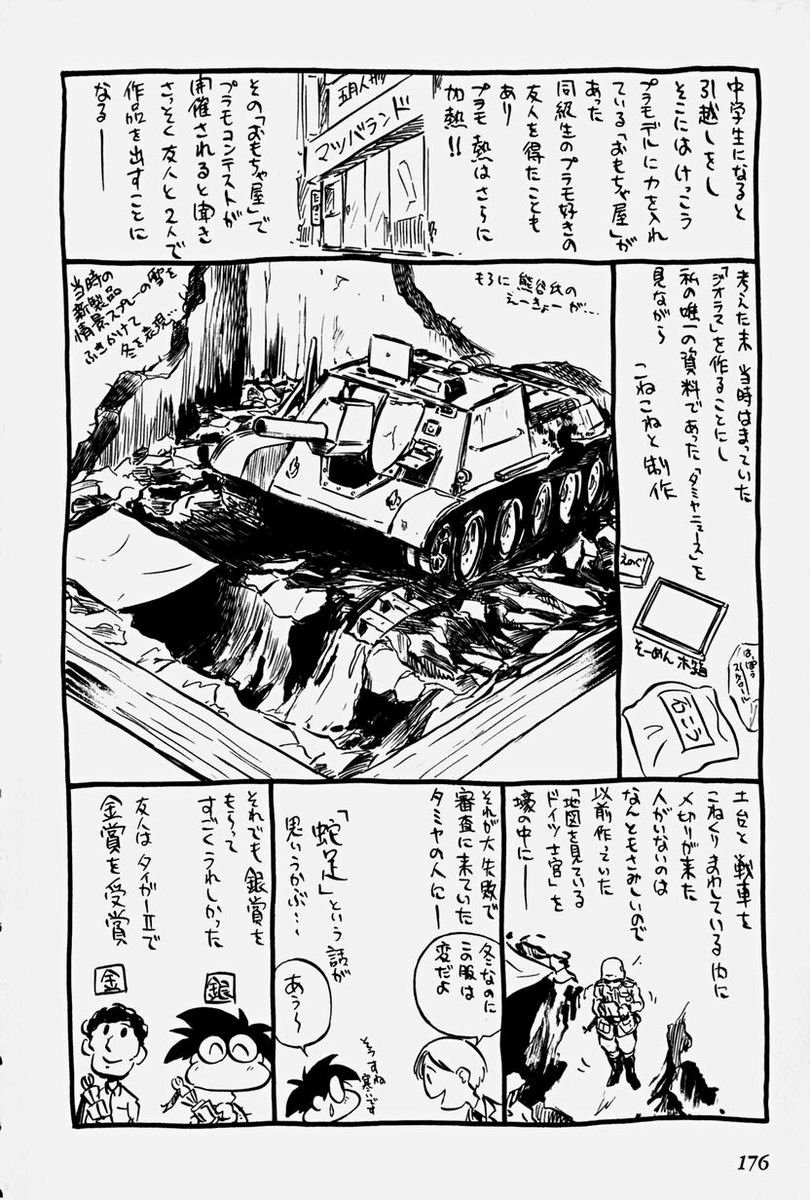 中学生になると
引越しをし
そこにはけっこう
プラモデルに力を入れ
ている「おもちゃ屋」が
あった
同級生のプラモ好きの
友人を得たことも
あり
プラモ熱はさらに
加熱!!
五月人形
マツバランド
たばこ
その「おもちゃ屋」で
プラモコンテストが
開催されると聞き
さっそく友人と2人で
作品を出すことに
なる——
考えた末 当時はまっていた
「ジオラマ」を作ることにし
私の唯一の資料であった「タミヤニュース」を
見ながら
こねこねと制作
えのぐ
そーめん木箱
石こう
もろに熊谷氏の
えーきょーが…
当時の
新製品
情景スプレーの雪を
ふきかけて
冬を表現…
土台と戦車を
こねくりまわしている内に
〆切りが来た
人がいないのは
なんともさみしいので
以前作っていた
「地図を見ている
ドイツ士官」を
壕の中に——
それが大失敗で
審査に来ていた
タミヤの人に—
冬なのに
この服は
変だよ
「蛇足」という話が
思いうかぶ…
あう〜
そうすね
寒いです
それでも銀賞を
もらって
すごくうれしかった
友人はタイガーⅡで
金賞を受賞
銀
金
176